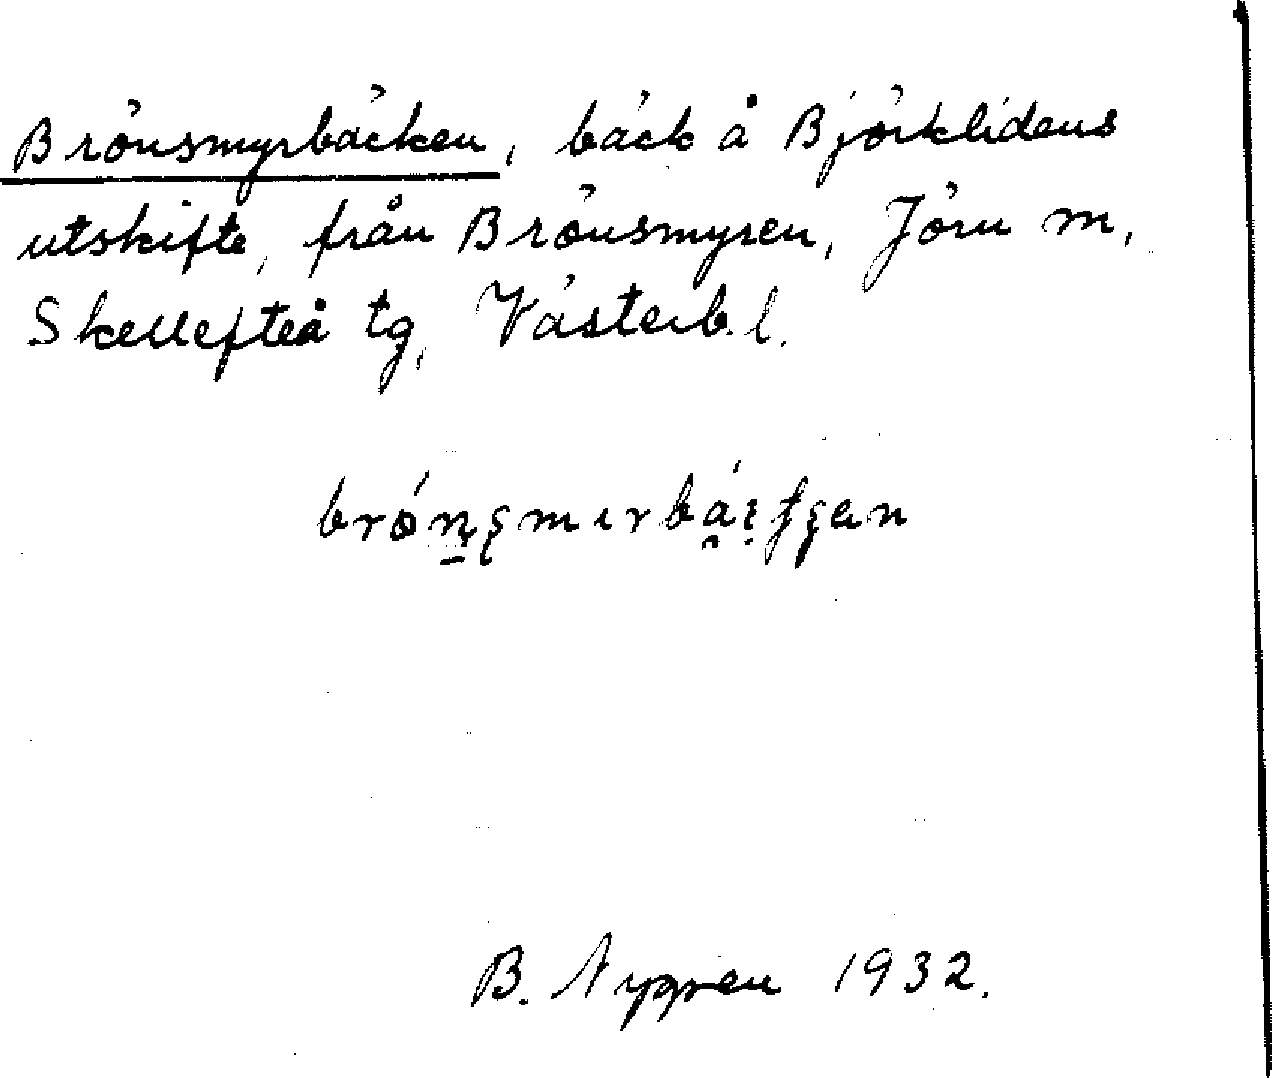 Brönsmyrbäcken, bäck å Björklidens
utskifte, från Brönsmyren, Jörn sn,
Skellefteå tg, Västerb. l.
B. Nygren 1932.